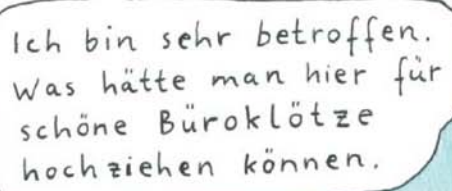 Ich bin sehr betroffen.
Was hätte man hier für
schöne Büroklötze
hochziehen können.